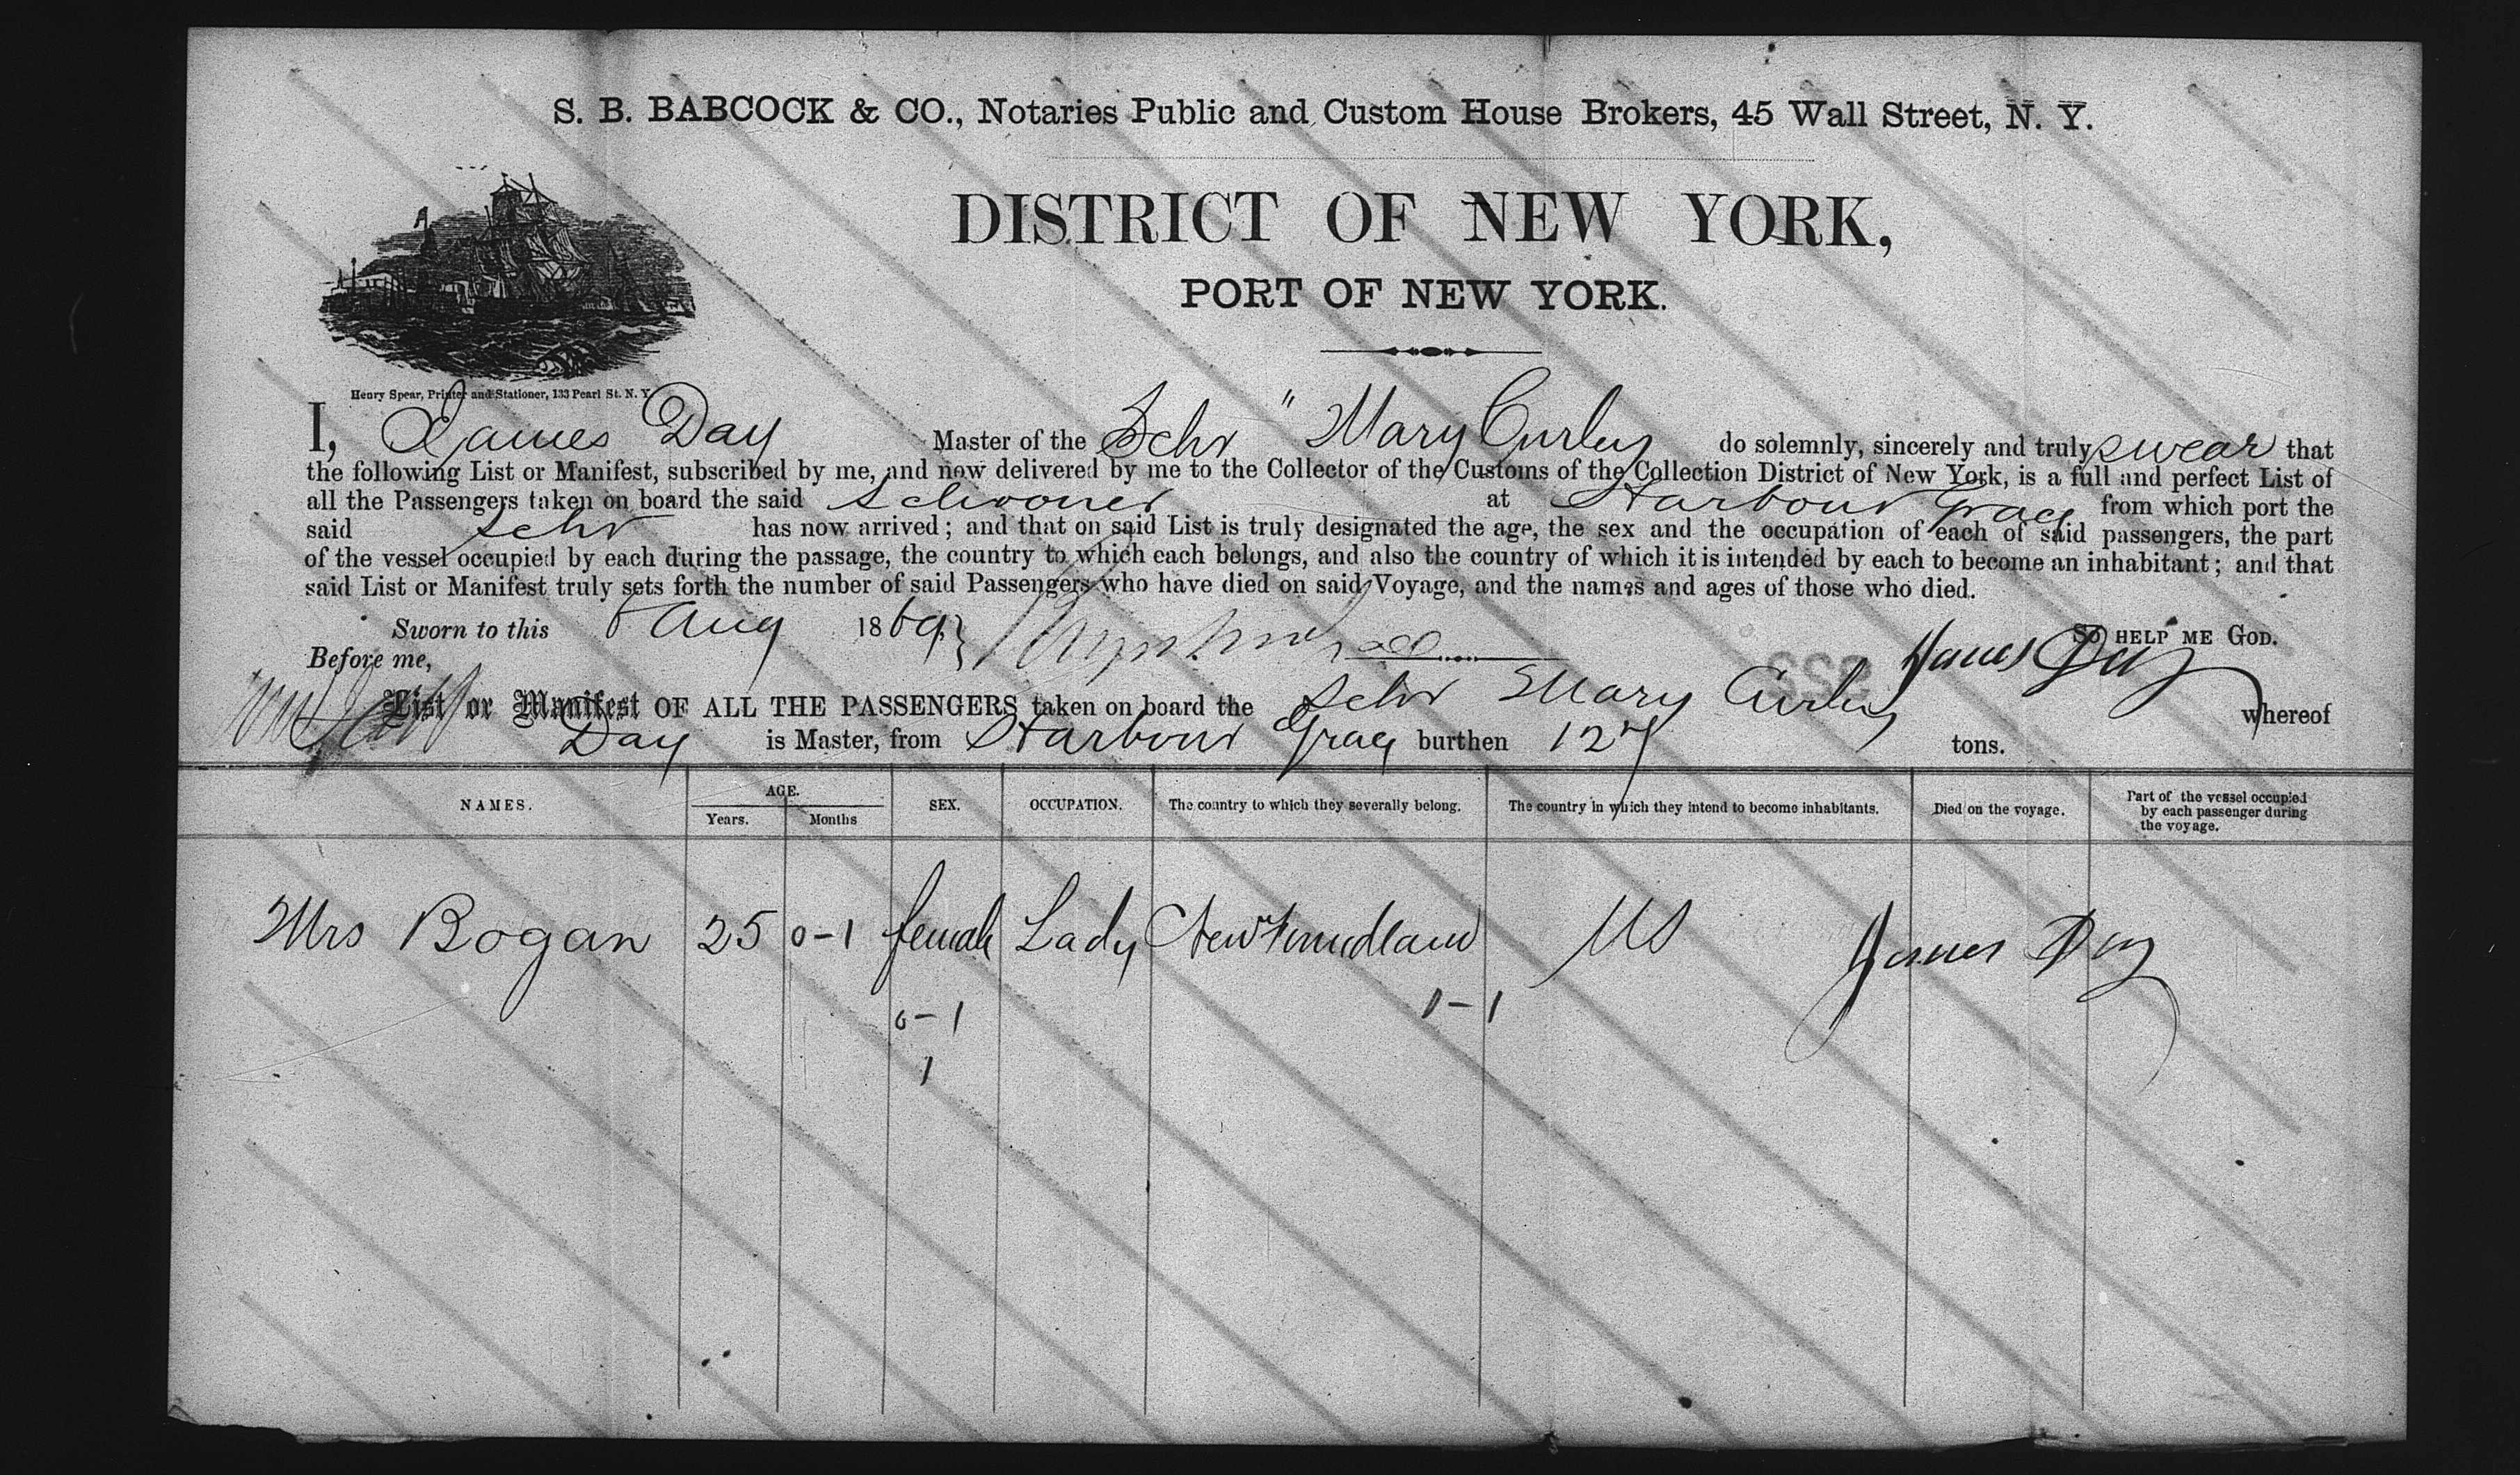 S. B. BABCOCK & CO., Notaries Public and Custom House Brokers, 45 Wall Street, N. Y.
DISTRICT OF NEW YORK,
PORT OF NEW YORK.
Henry Spear, Printer and Stationer, 133 Pearl St. N. Y.
I, James Day Master of the Schr "Mary Curley do solemnly, sincerely and truly swear that
the following List or Manifest, subscribed by me, and now delivered by me to the Collector of the Customs of the Collection District of New York, is a full and perfect List of
all the Passengers taken on board the said Schooner at Harbour Grace from which port the
said Schr has now arrived; and that on said List is truly designated the age, the sex and the occupation of each of said passengers, the part
of the vessel occupied by each during the passage, the country to which each belongs, and also the country of which it is intended by each to become an inhabitant; and that
said List or Manifest truly sets forth the number of said Passengers who have died on said Voyage, and the names and ages of those who died.
Sworn to this Aug 1869 SO HELP ME GOD.
Before me, James Day
List or Manifest OF ALL THE PASSENGERS taken on board the Schr Mary Curley whereof
Day is Master, from Harbour Grace burthen 127 tons.
NAMES. AGE. Years. Months SEX. OCCUPATION. The country to which they severally belong. The country in which they intend to become inhabitants. Died on the voyage. Part of the vessel occupied by each passenger during the voyage.
Mrs Bogan 25 0-1 female Lady Newfoundland US James Day
0-1 1-1
1